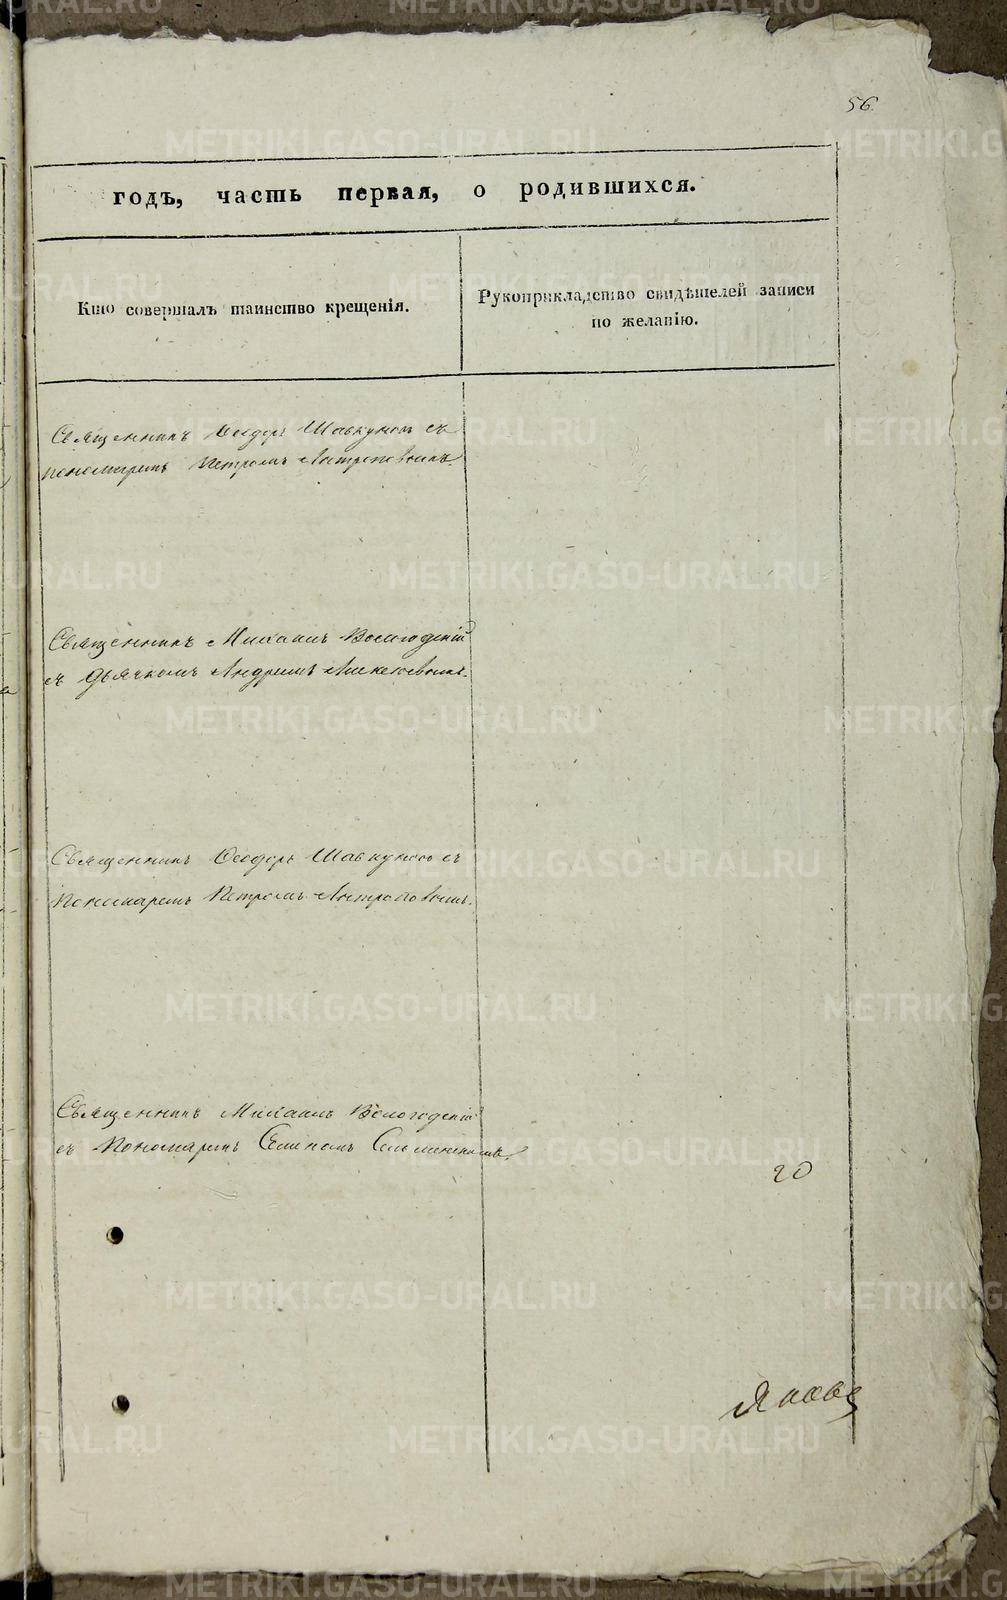 56.
годъ, часть первая, о родившихся.
Кто совершалъ таинство крещенія.
Рукоприкладство свидѣтелей записи
по желанію.
Священникъ Ѳеодоръ Шавкуновъ съ
пономаремъ Петромъ Антроповымъ.
Священникъ Михаилъ Вологодскій
съ дьячкомъ Андреемъ Алексеевымъ.
Священникъ Ѳеодоръ Шавкуновъ съ
Пономаремъ Петромъ Антроповымъ.
Священникъ Михаилъ Вологодскій
съ Пономаремъ
20
Яковъ
METRIKI.GASO-URAL.RU